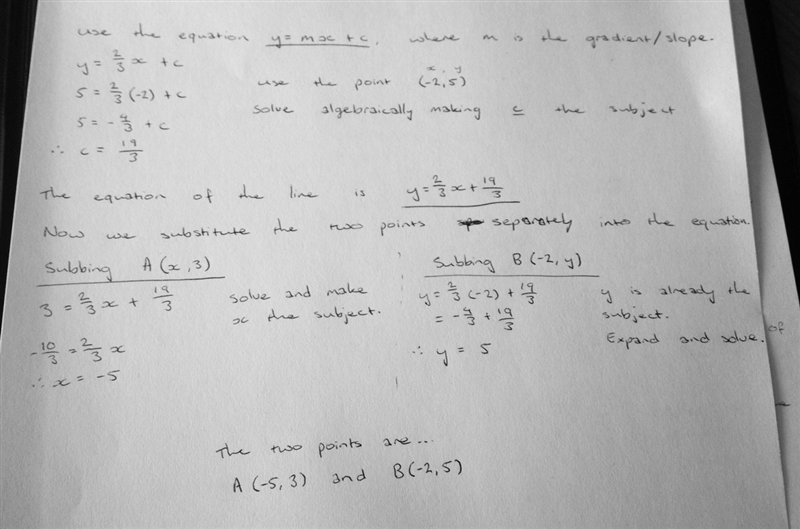 use the equation y = mx + c, where m is the gradient/slope.
y = 2/3 x + c
x, y
5 = 2/3 (-2) + c use the point (-2,5)
5 = -4/3 + c solve algebraically making c the subject
∴ c = 19/3
The equation of the line is y = 2/3 x + 19/3
Now we substitute the two points separately into the equation.
Subbing A(x,3)
3 = 2/3 x + 19/3 solve and make
x the subject.
-10/3 = 2/3 x
∴ x = -5
Subbing B(-2,y)
y = 2/3 (-2) + 19/3 y is already the
= -4/3 + 19/3 subject.
Expand and solve.
∴ y = 5
of
The two points are...
A(-5,3) and B(-2,5)